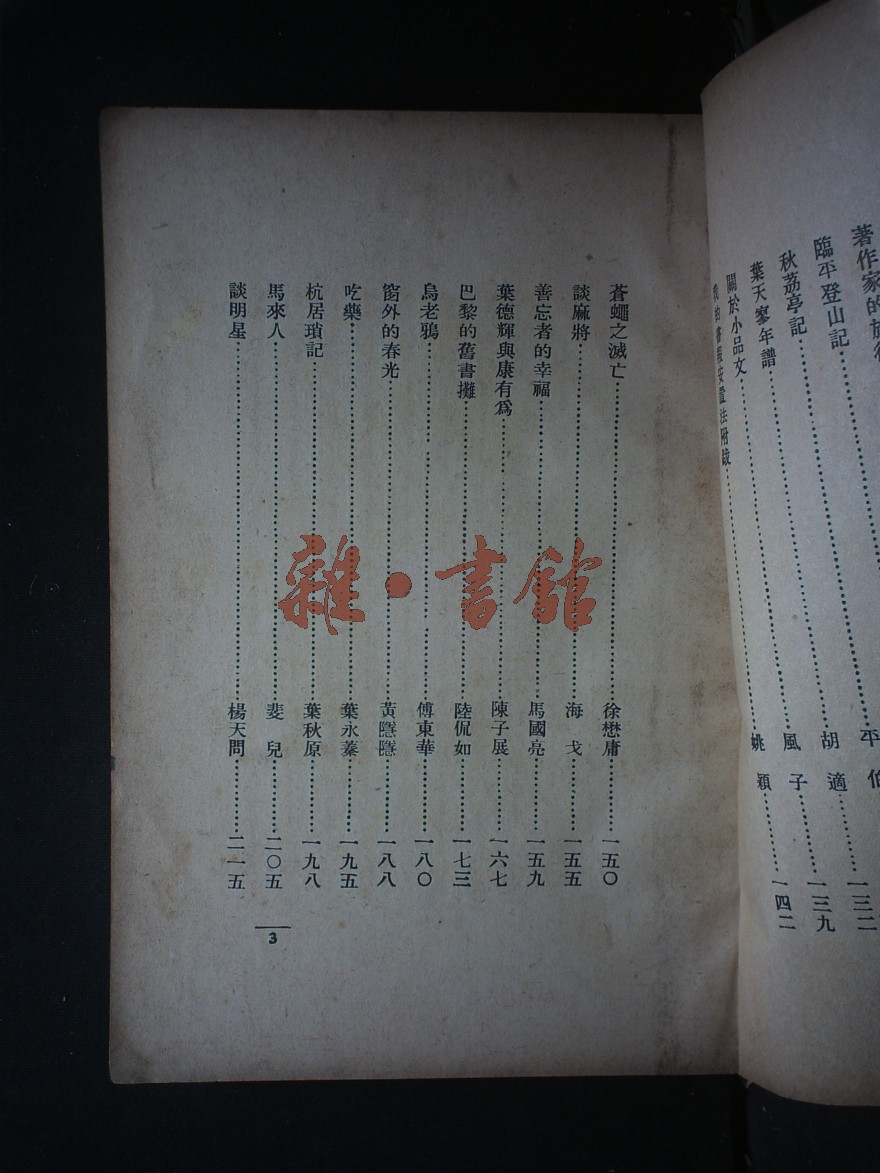 著作家的旅行
平伯
臨平登山記
胡適
一三二
秋荔亭記
風子
一三九
葉天寥年譜
姚穎
一四二
關於小品文
蒼蠅之滅亡……徐懋庸……一五〇
談麻將……海戈……一五五
善忘者的幸福……馬國亮……一五九
葉德輝與康有爲……陳子展……一六七
巴黎的舊書攤……陸侃如……一七三
烏老鴉……傅東華……一八〇
窗外的春光……黃隱隱……一八八
吃藥……葉永蓁……一九五
杭居瑣記……葉秋原……一九八
馬來人……斐兒……二〇五
談明星……楊天問……二一五
3
雜·書館